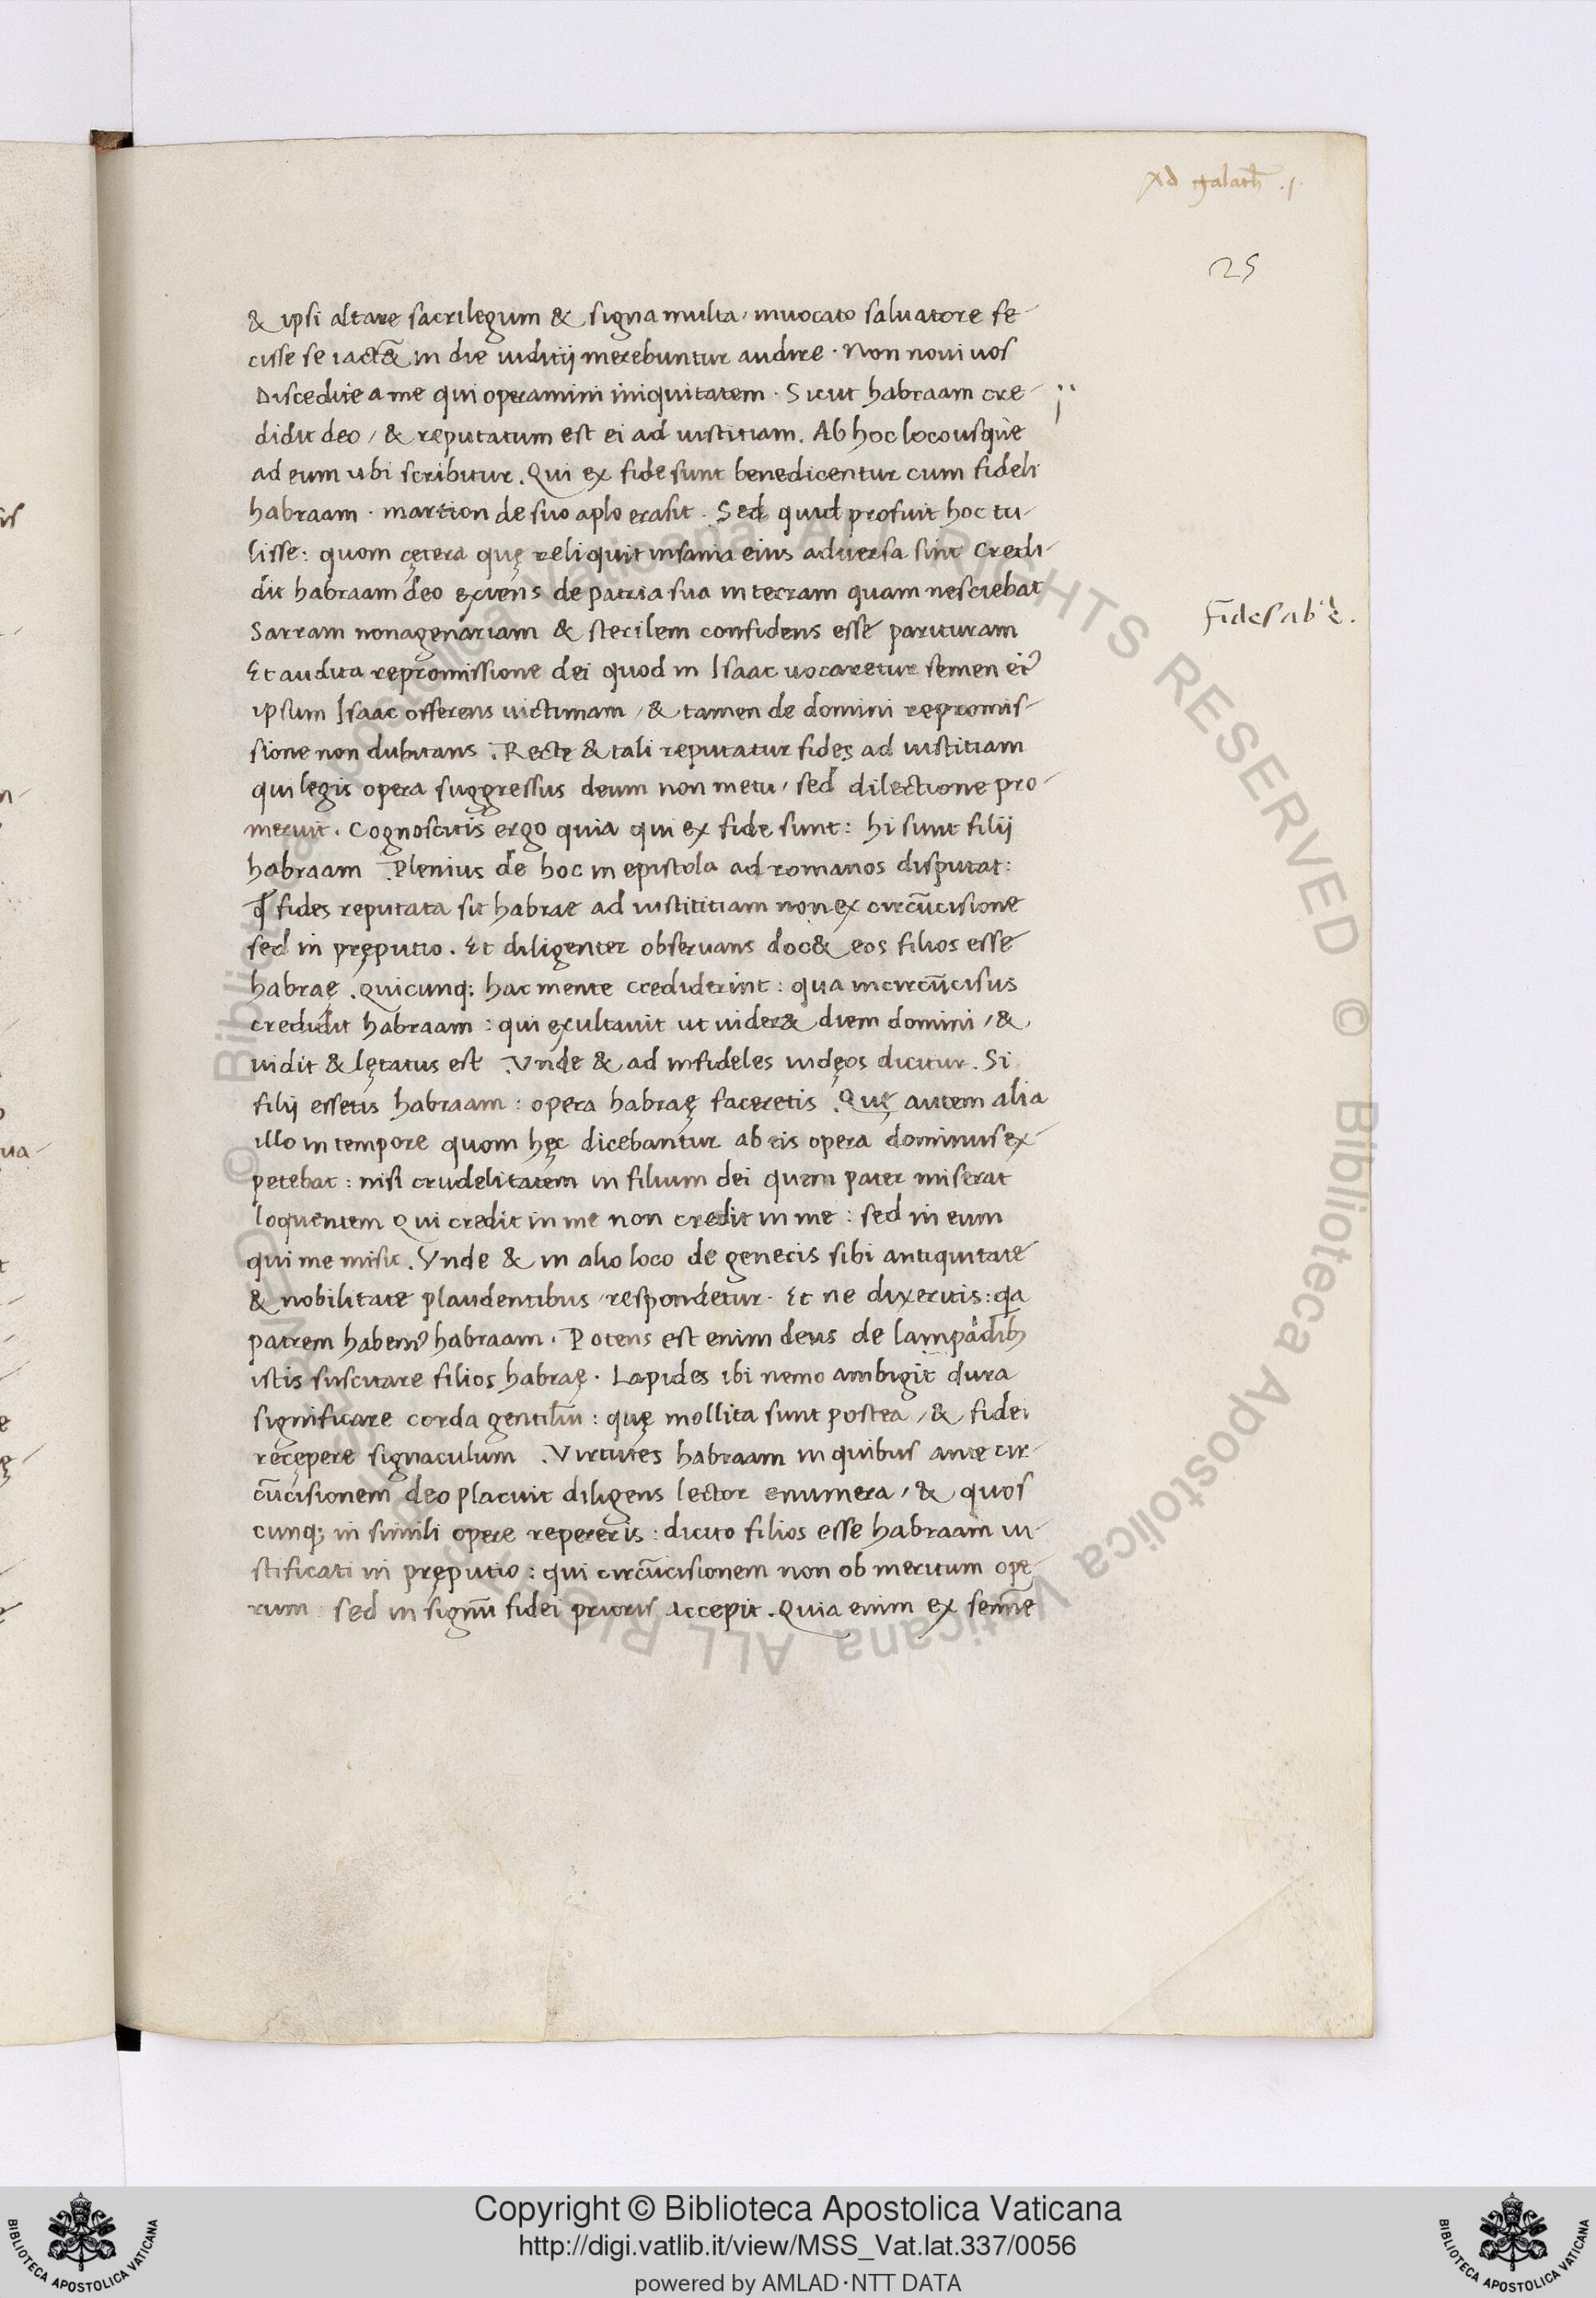 Ad galath̄ .1.
25
& ipsi altare sacrilegum & signa multa, inuocato saluatore fe-
cisse se iactēt in die iuditij merebuntur audire. Non noui uos
Discedite a me qui operamini iniquitatem. Sicut habraam cre-
didit deo, & reputatum est ei ad iustitiam. Ab hoc loco usque
ad eum ubi scribitur. Qui ex fide sunt benedicentur cum fideli
habraam. martion de suo aplo erasit. Sed quid profuit hoc tu-
lisse: quom cętera quę reliquit insania eius aduersa sint Credi-
dit habraam deo exiens de patria sua in terram quam nesciebat
Fides ab̄ę.
Sarram nonagenariam & sterilem confidens esse parituram
Et audita repromissione dei quod in Isaac uocaretur semen eiꝰ
ipsum Isaac offerens uictimam, & tamen de domini repromis-
sione non dubitans. Recte & tali reputatur fides ad iustitiam
qui legis opera suggressus deum non metu, sed dilectione pro-
meruit. Cognoscitis ergo quia qui ex fide sunt: hi sunt filij
habraam. Plenius de hoc in epistola ad romanos disputat:
ꝙ fides reputata sit habrae ad iustititiam non ex circūcisione
sed in pręputio. Et diligenter obseruans doc& eos filios esse
habraę. Quicunq; hac mente crediderint: qua incircūcisus
credidit habraam: qui exultauit ut uider& diem domini, &
uidit & lętatus est. Vnde & ad infideles iudęos dicitur. Si
filij essetis habraam: opera habraę faceretis. Quę autem alia
illo in tempore quom hęc dicebantur ab eis opera dominus ex-
petebat: nisi crudelitatem in filium dei quem pater miserat
loquentem Qui credit in me non credit in me: sed in eum
qui me misit. Vnde & in alio loco de generis sibi antiquitate
& nobilitate plaudentibus, respondetur. Et ne dixeritis: qa
patrem habemꝰ habraam. Potens est enim deus de lampadib;
istis suscitare filios habraę. Lapides ibi nemo ambigit dura
significare corda gentiliū: quę mollita sunt postea, & fidei
recępere signaculum. Virtutes habraam in quibus ante cir-
cūcisionem deo placuit diligens lector enumera, & quos
cunq; in simili opere repereris: dicito filios esse habraam iu-
stificati in pręputio: qui circūcisionem non ob meritum ope-
rum: sed in signū fidei prioris accepit. Quia enim ex semīe
Copyright © Biblioteca Apostolica Vaticana
http://digi.vatlib.it/view/MSS_Vat.lat.337/0056
powered by AMLAD·NTT DATA